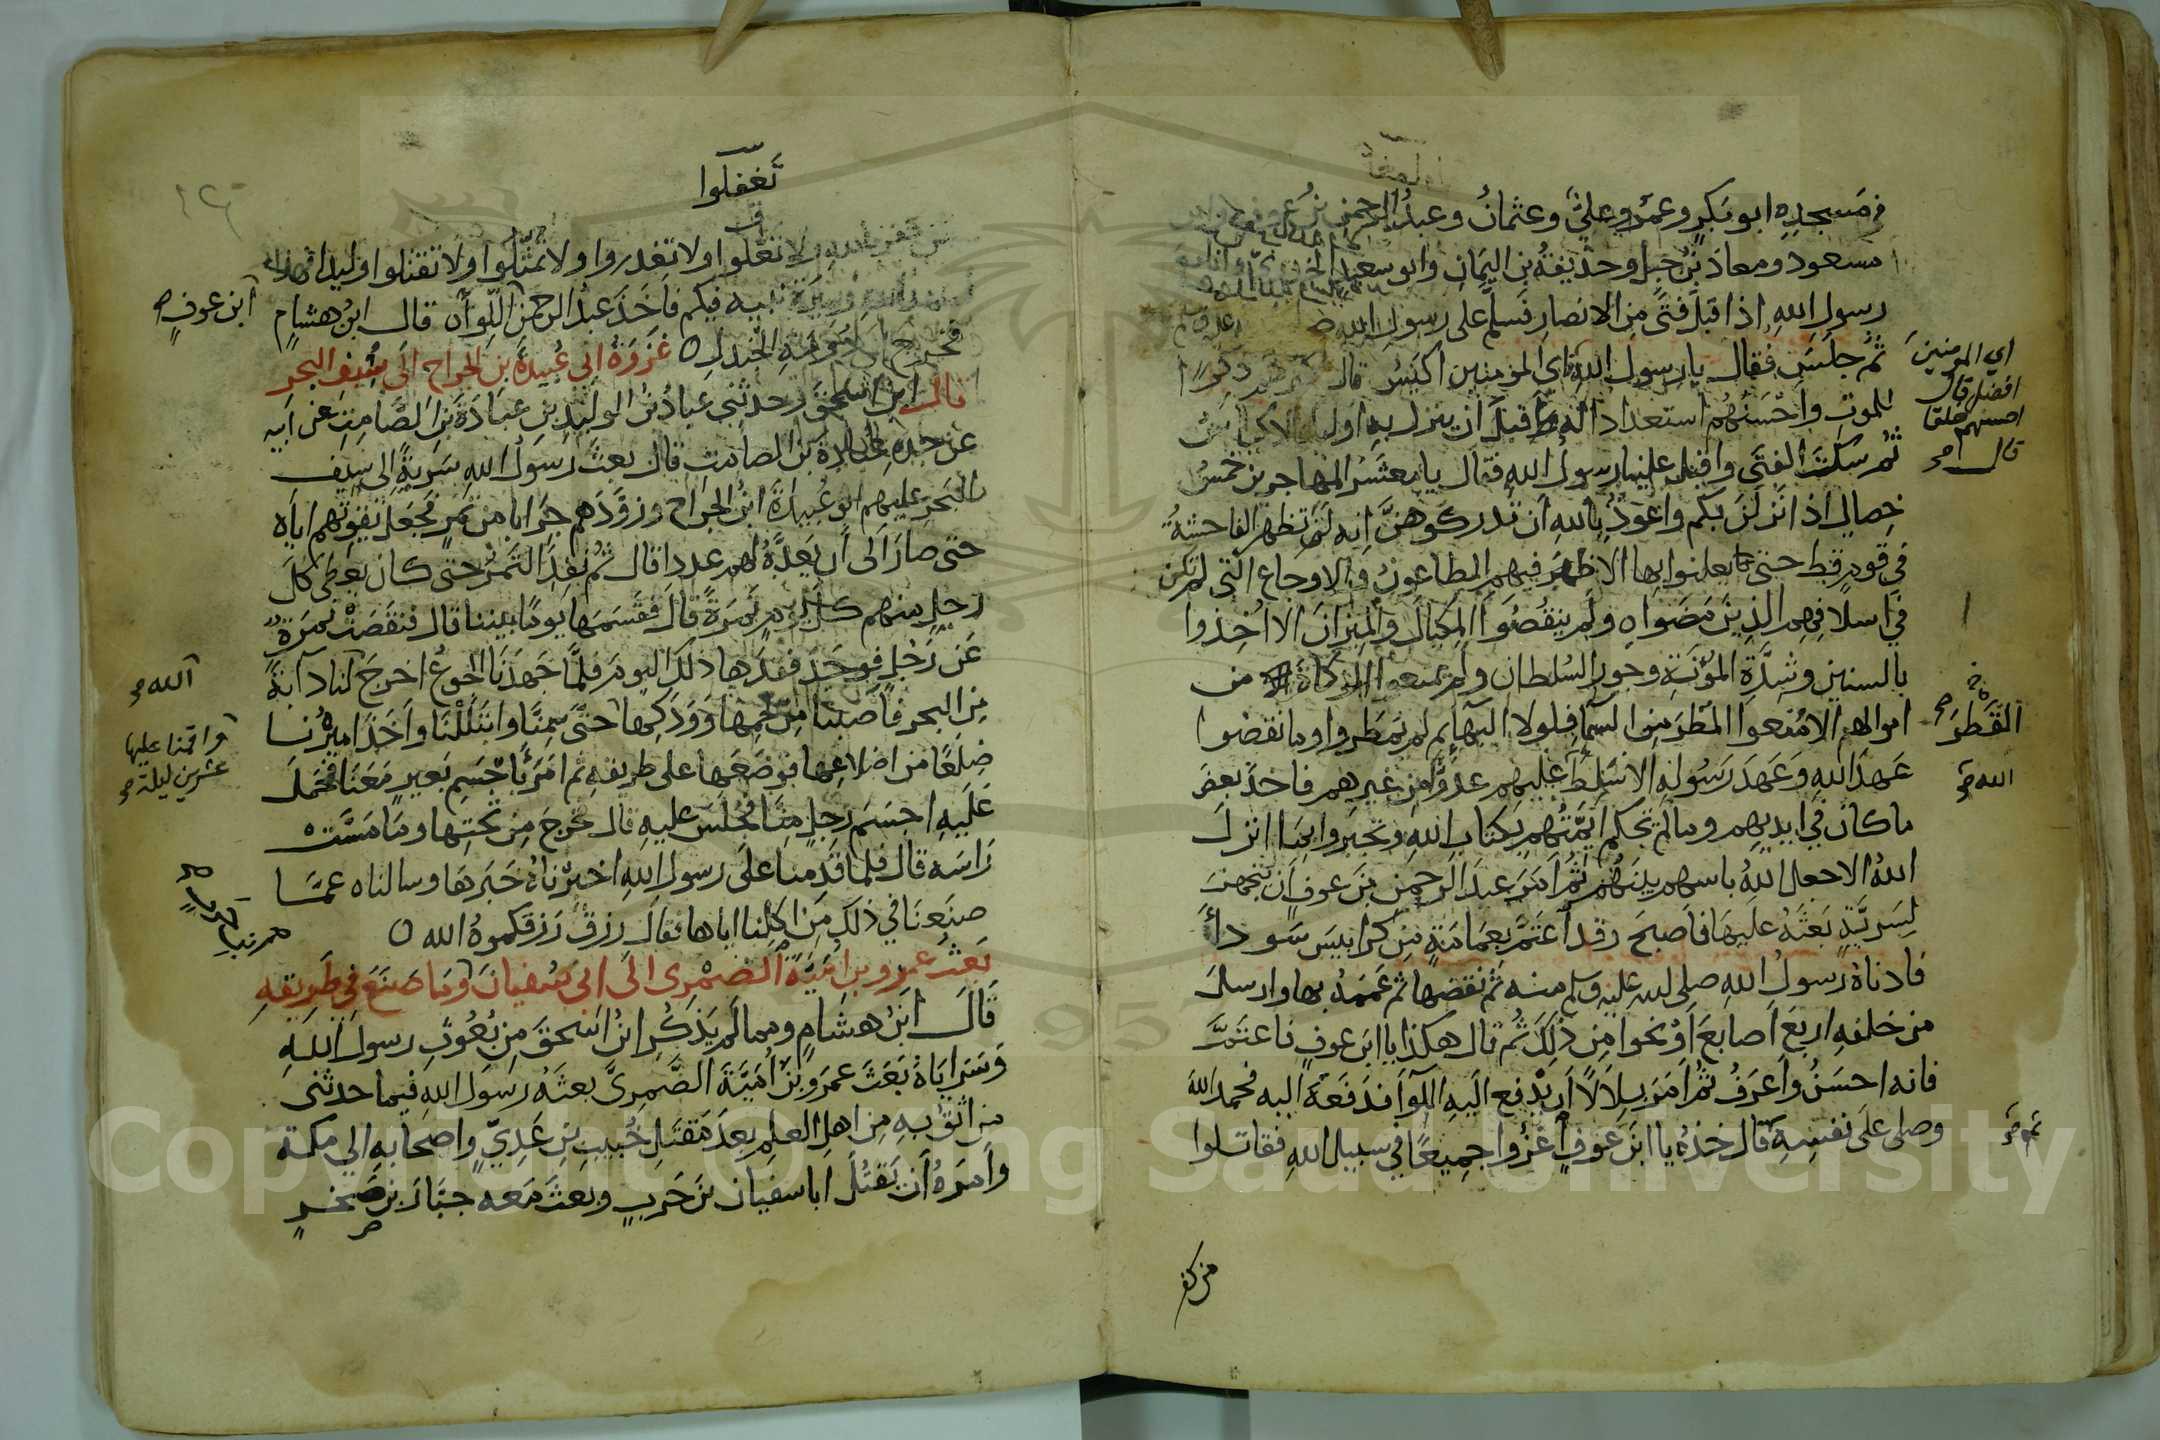 في مسجده ابو بكر وعمر وعلي وعثمان وعبد الرحمن بن عوف وابن
مسعود ومعاذ بن جبل وحذيفة بن اليمان وابو سعيد الخدري وانا مع
رسول الله اذ اقبل فتى من الانصار فسلم على رسول الله
ثم جلس فقال يا رسول الله اي المومنين اكيس قال اكثرهم ذكرا
اي المومنين
افضل قال
احسنهم خلقا
قال
للموت واحسنهم استعدادا له قبل ان ينزل به اوليك الاكياس
ثم سكت الفتى واقبل علينا رسول الله فقال يا معشر المهاجرين خمس
خصال اذا نزلن بكم واعوذ بالله ان تدركوهن انه لم تظهر الفاحشة
في قوم قط حتى يعلنوا بها الا ظهر فيهم الطاعون والاوجاع التي لم تكن
في اسلافهم الذين مضوا ولم ينقصوا المكيال والميزان الا اخذوا
بالسنين وشدة المؤنة وجور السلطان ولم يمنعوا الزكاة من
اموالهم الا منعوا المطر من السما فلولا البهايم لم يمطروا وما نقضوا
القطر
عهد الله وعهد رسوله الا سلط عليهم عدوا من غيرهم فاخذ بعض
الله
ما كان في ايديهم وما لم تحكم ايمتهم بكتاب الله وتجبروا فيما انزل
الله الا جعل الله باسهم بينهم ثم امر عبد الرحمن بن عوف ان يتجهز
لسرية بعثه عليها فاصبح وقد اعتم بعمامة من كرابيس سودا
فادناه رسول الله صلى الله عليه وسلم منه ثم نقضها ثم عممه بها وارسل
من خلفه اربع اصابع او نحوا من ذلك ثم قال هكذا يا ابن عوف فاعتم
فانه احسن واعرف ثم امر بلالا ان يدفع اليه اللوا فدفعه اليه فحمد الله
وصلى على نفسه قال خذه يا ابن عوف اغزوا جميعا في سبيل الله فقاتلوا
ثم
من كفر
تغفلوا
من كفر بالله لا تغلوا ولا تغدروا ولا تمثلوا ولا تقتلوا وليدا فهذا
عهد الله وسيرة نبيه فيكم فاخذ عبد الرحمن اللوا قال ابن هشام
ابن عوف
فخرج الى دومة الجندل غزوة ابي عبيدة بن الجراح الى سيف البحر
قال ابن اسحق وحدثني عبادة بن الوليد بن عبادة بن الصامت عن ابيه
عن جده عبادة بن الصامت قال بعث رسول الله سرية الى سيف
البحر عليهم ابو عبيدة ابن الجراح وزودهم جرابا من تمر فجعل يقوتهم اياه
حتى صار الى ان يعده لهم عددا قال ثم نفد التمر حتى كان يعطي كل
رجل منهم كل يوم تمرة قال فقسمها يوما بيننا قال فنقصت تمرة
عن رجل فوجد فقدها ذلك اليوم فلما جهدنا الجوع اخرج لنا دابة
الله
من البحر فاصبنا من لحمها وودكها حتى سمنا وابتللنا واخذ اميرنا
واقمنا عليها
عشرين ليلة
ضلعا من اضلاعها فوضعها على طريقه ثم امر باجسم بعير معنا فحمل
عليه اجسم رجل منا فجلس عليه قال فخرج من تحتها وما مست
راسه قال فلما قدمنا على رسول الله اخبرناه خبرها وسالناه عما
صنعنا في ذلك من اكلنا اياها فقال رزق رزقكموه الله
بعث عمرو بن امية الضمري الى ابي سفيان وما صنع في طريقه
قال ابن هشام ومما لم يذكر ابن اسحق من بعوث رسول الله
وسراياه بعث عمرو بن امية الضمري بعثه رسول الله فيما حدثني
من اثق به من اهل العلم بعد مقتل خبيب بن عدي واصحابه الى مكة
وامره ان يقتل ابا سفيان بن حرب وبعث معه جبار بن صخر